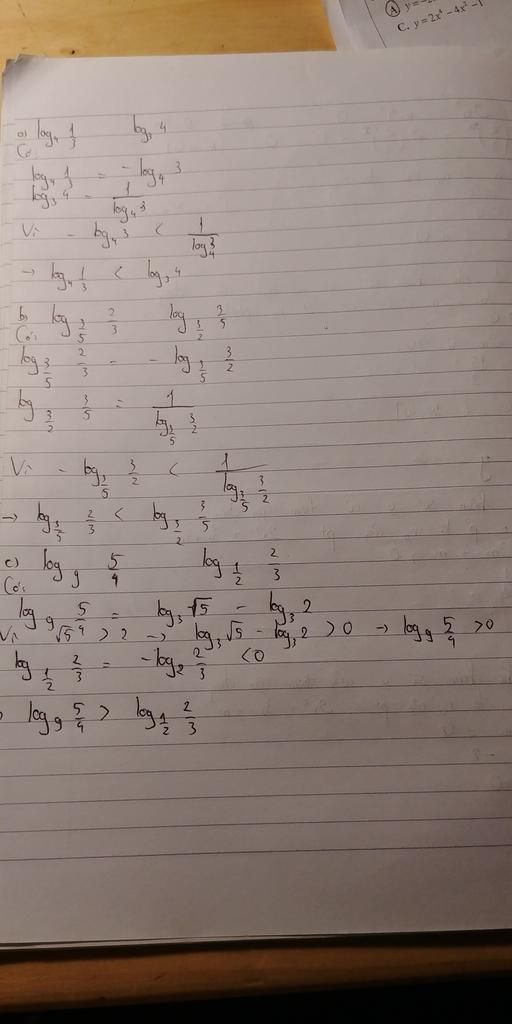 A y=-2
C. y=2x⁴-4x²-1
a) log₄ 1/3 log₃ 4
Có:
log₄ 1/3 = -log₄ 3
log₃ 4 = 1/(log₄ 3)
Vì -log₄ 3 < 1/(log₄ 3)
→ log₄ 1/3 < log₃ 4
b) log_(3/5) 2/3 log_(3/2) 3/5
Có:
log_(3/5) 2/3 = -log_(3/5) 3/2
log_(3/2) 3/5 = 1/(log_(3/5) 3/2)
Vì -log_(3/5) 3/2 < 1/(log_(3/5) 3/2)
→ log_(3/5) 2/3 < log_(3/2) 3/5
c) log₉ 5/4 log_(1/2) 2/3
Có:
log₉ 5/4 = log₃ √5 - log₃ 2
Vì √5 > 2 → log₃ √5 - log₃ 2 > 0 → log₉ 5/4 > 0
log_(1/2) 2/3 = -log₂ 2/3 < 0
log₉ 5/4 > log_(1/2) 2/3